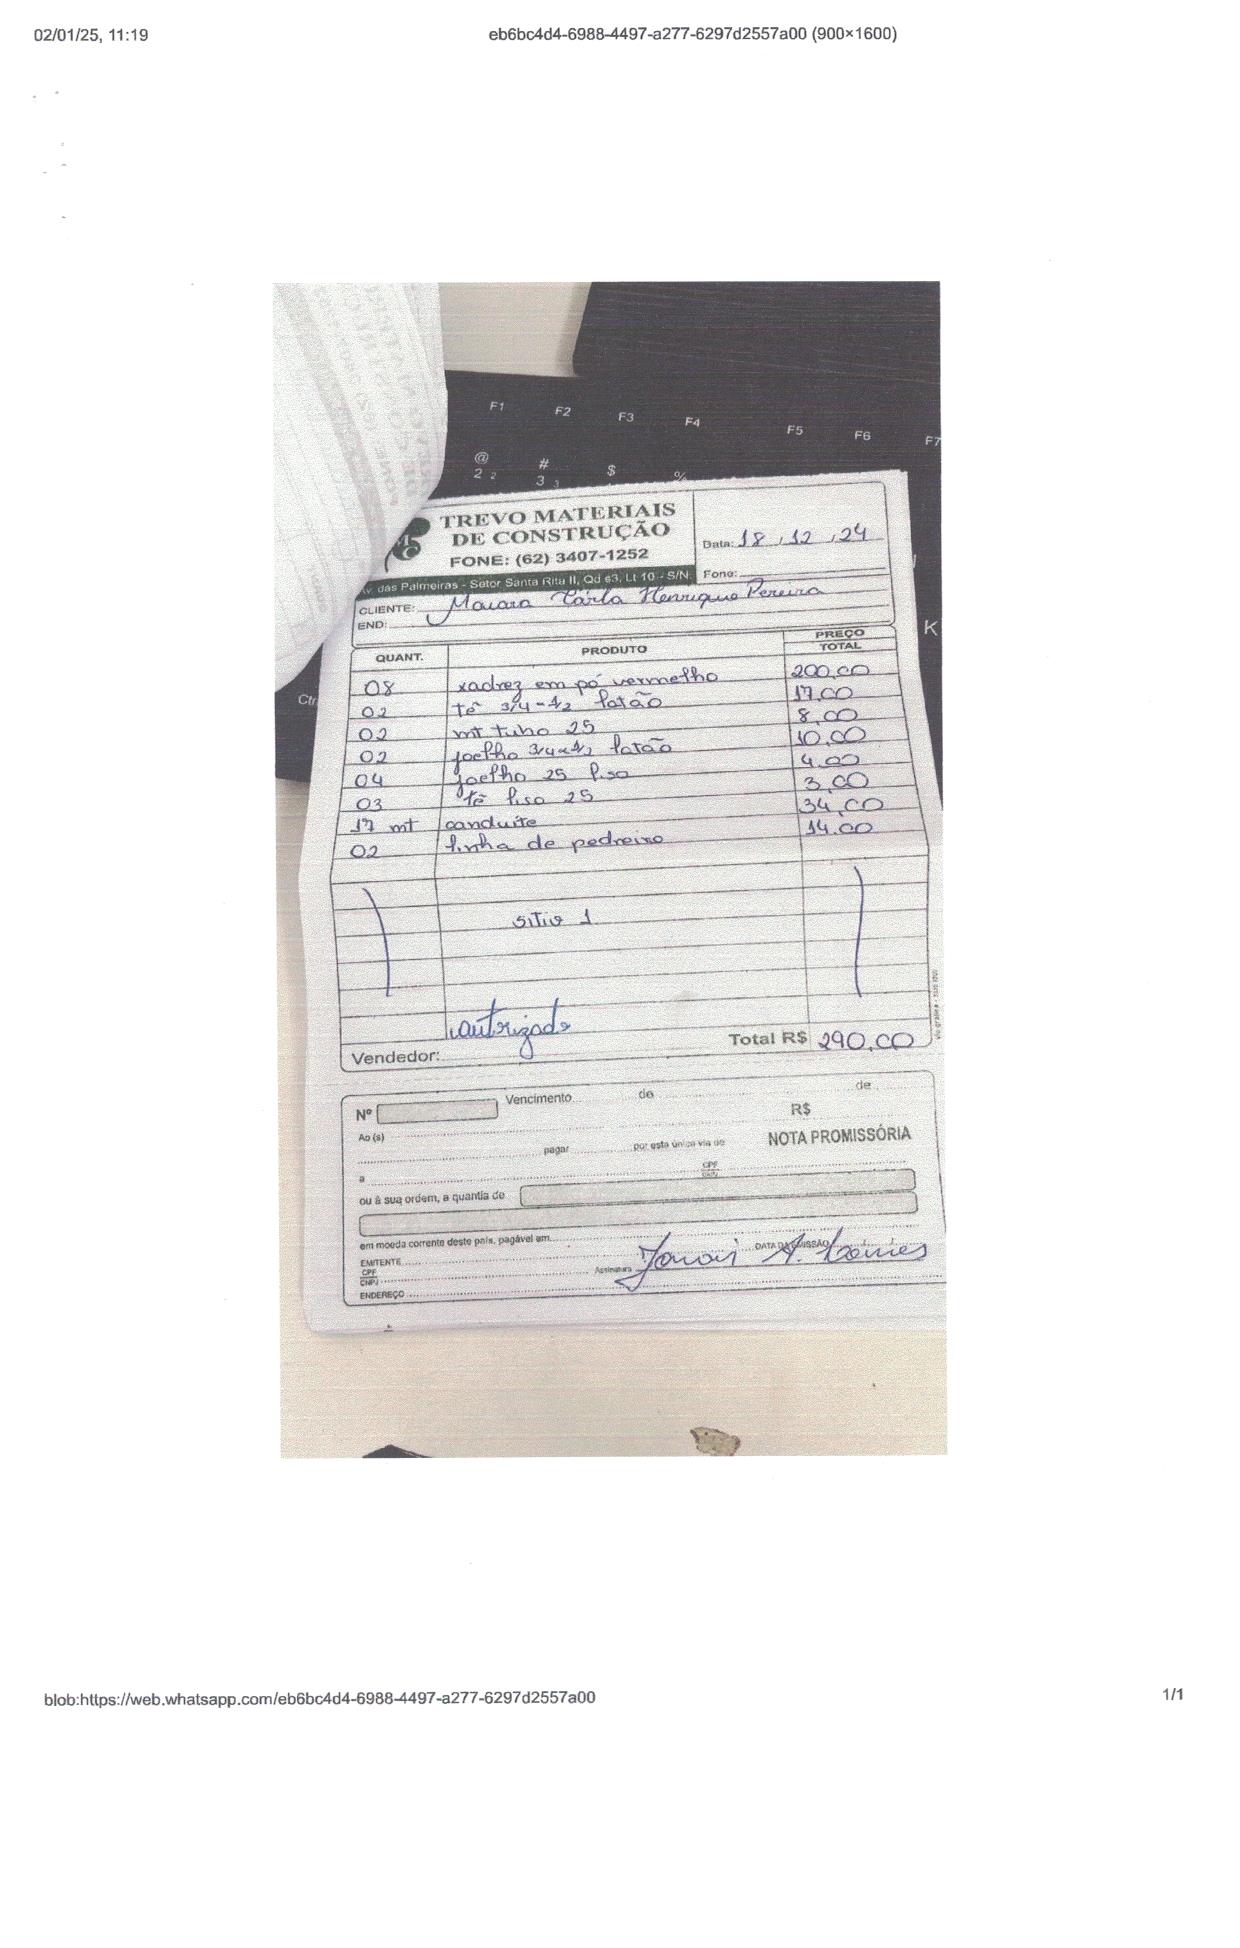 02/01/25, 11:19
eb6bc4d4-6988-4497-a277-6297d2557a00 (900×1600)
F1 F2 F3 F4 F5 F6 F7
@ # $ %
2 2 3 3
K
TREVO MATERIAIS
DE CONSTRUÇÃO
FONE: (62) 3407-1252
Av. das Palmeiras - Setor Santa Rita II, Qd 63, Lt 10 - S/N.
Data: 18 / 12 / 24
Fone:
CLIENTE: Maiara Carla Henrique Pereira
END:
QUANT. PRODUTO PREÇO TOTAL
08 xadrez em pó vermelho 200,00
02 tê 3/4-1/2 latão 17,00
02 mt tubo 25 8,00
02 joelho 3/4x1/2 latão 10,00
04 joelho 25 liso 4,00
03 tê liso 25 3,00
17 mt conduite 34,00
02 linha de pedreiro 14,00
sitio 1
autorizado
Vendedor:
Total R$ 290,00
Nº Vencimento de de
R$
Ao (s)
NOTA PROMISSÓRIA
pagar por esta única via de
a CPF
CNPJ
ou à sua ordem, a quantia de
em moeda corrente deste país, pagável em
EMITENTE DATA DA EMISSÃO
CPF
CNPJ
Assinatura
ENDEREÇO
blob:https://web.whatsapp.com/eb6bc4d4-6988-4497-a277-6297d2557a00
1/1